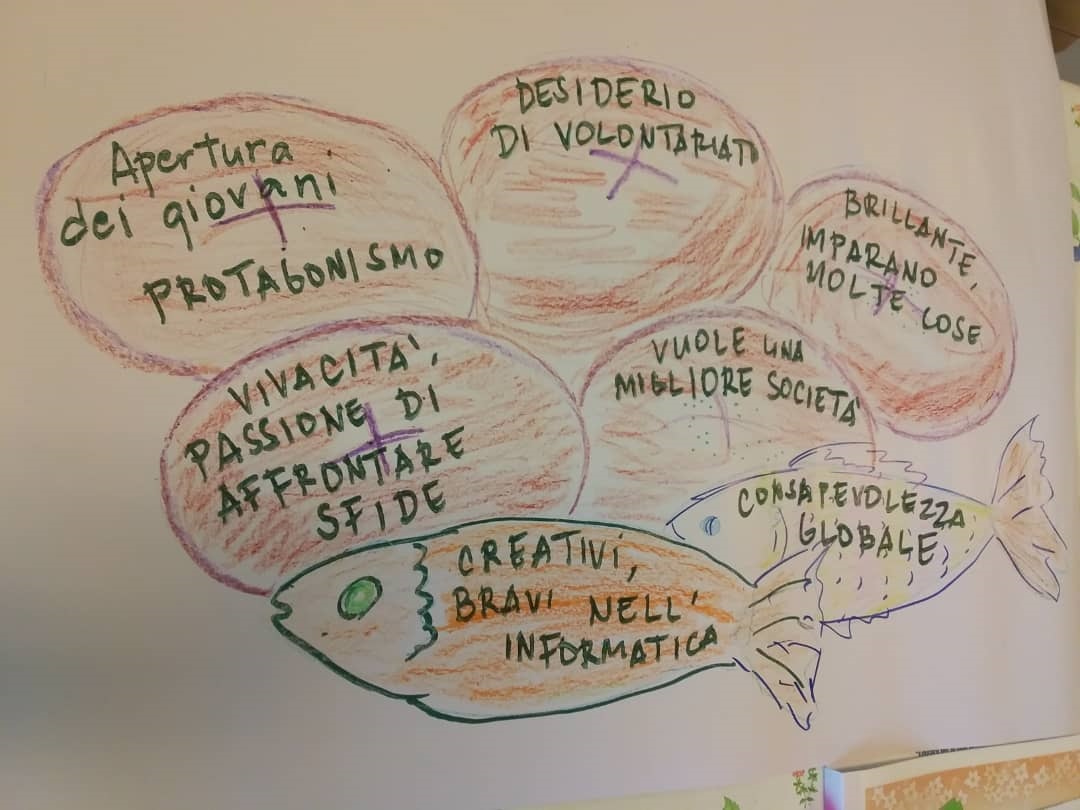 Apertura
dei giovani
PROTAGONISMO
DESIDERIO
DI VOLONTARIATO
BRILLANTE,
IMPARANO
MOLTE COSE
VIVACITA',
PASSIONE DI
AFFRONTARE
SFIDE
VUOLE UNA
MIGLIORE SOCIETA'
CONSAPEVOLEZZA
GLOBALE
CREATIVI,
BRAVI NELL'
INFORMATICA